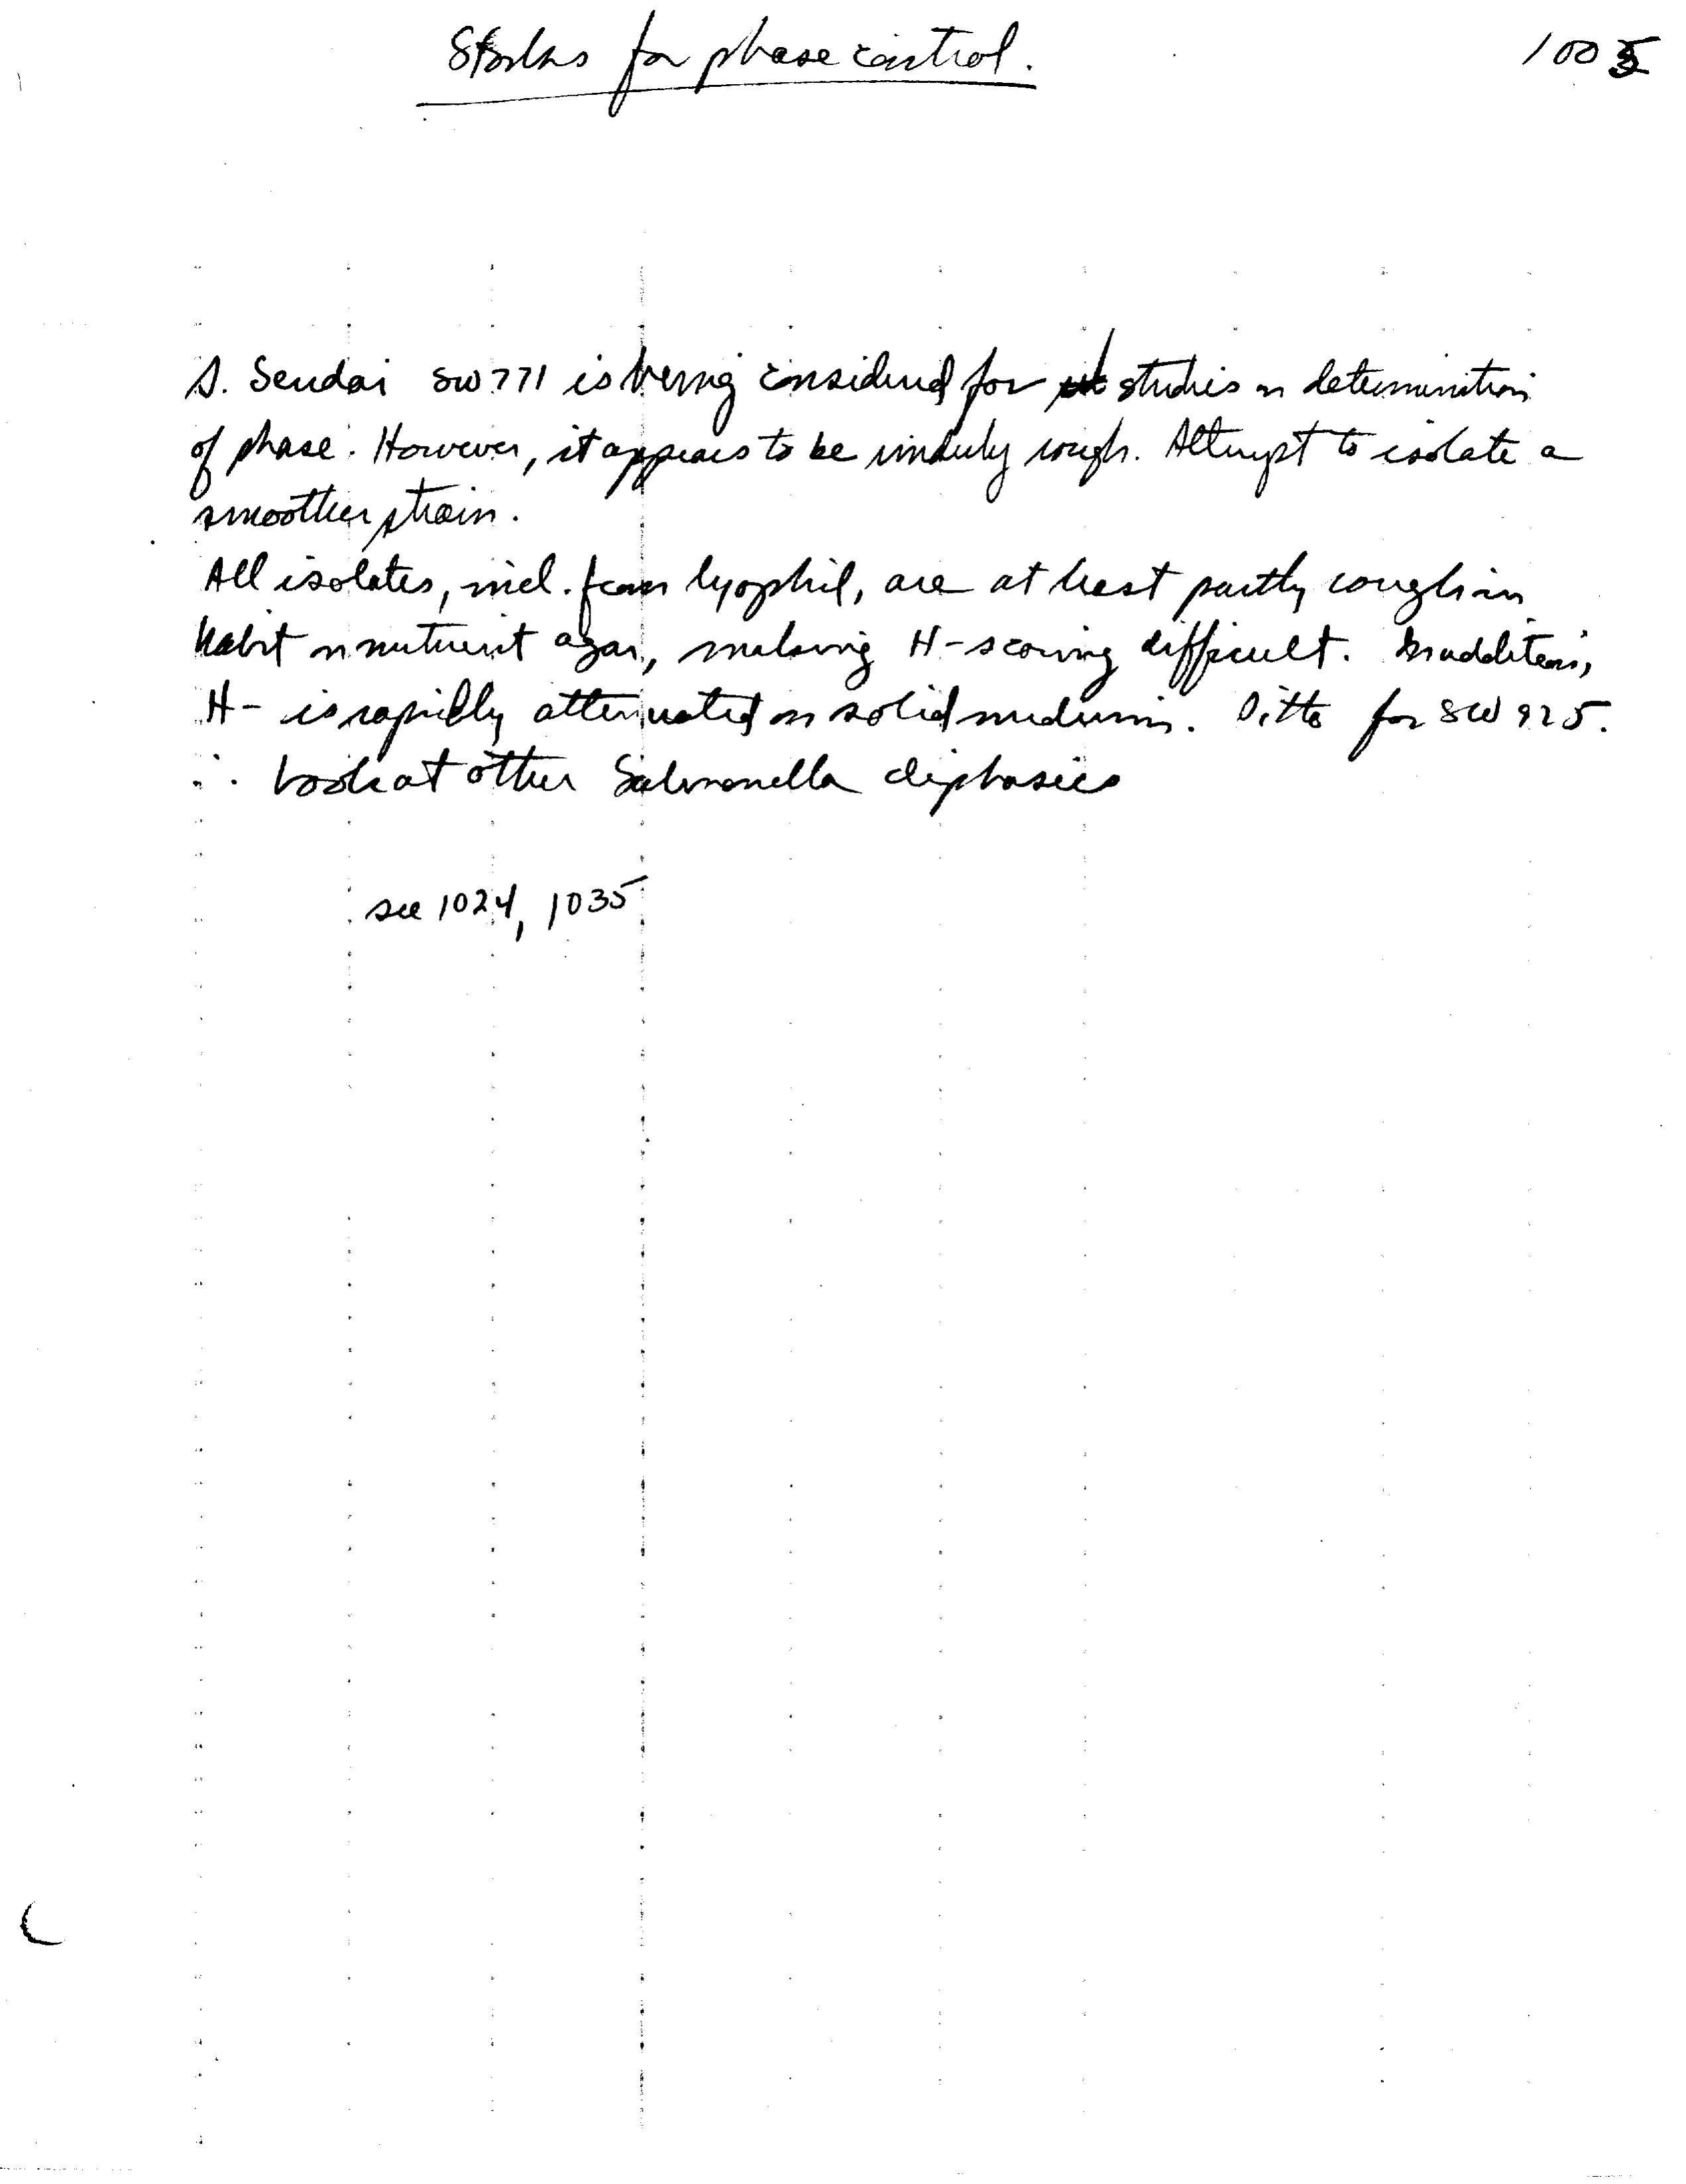 Stocks for phase control.
1005
S. Sendai SW771 is being considered for studies on determination
of phase. However, it appears to be unduly rough. Attempt to isolate a
smoother strain.
All isolates, incl. from lyophil, are at best partly rough in
habit on nutrient agar, making H-scoring difficult. In addition,
H- is rapidly attenuated on solid medium. Ditto for SW 925.
∴ Look at other Salmonella diphasics
see 1024, 1035